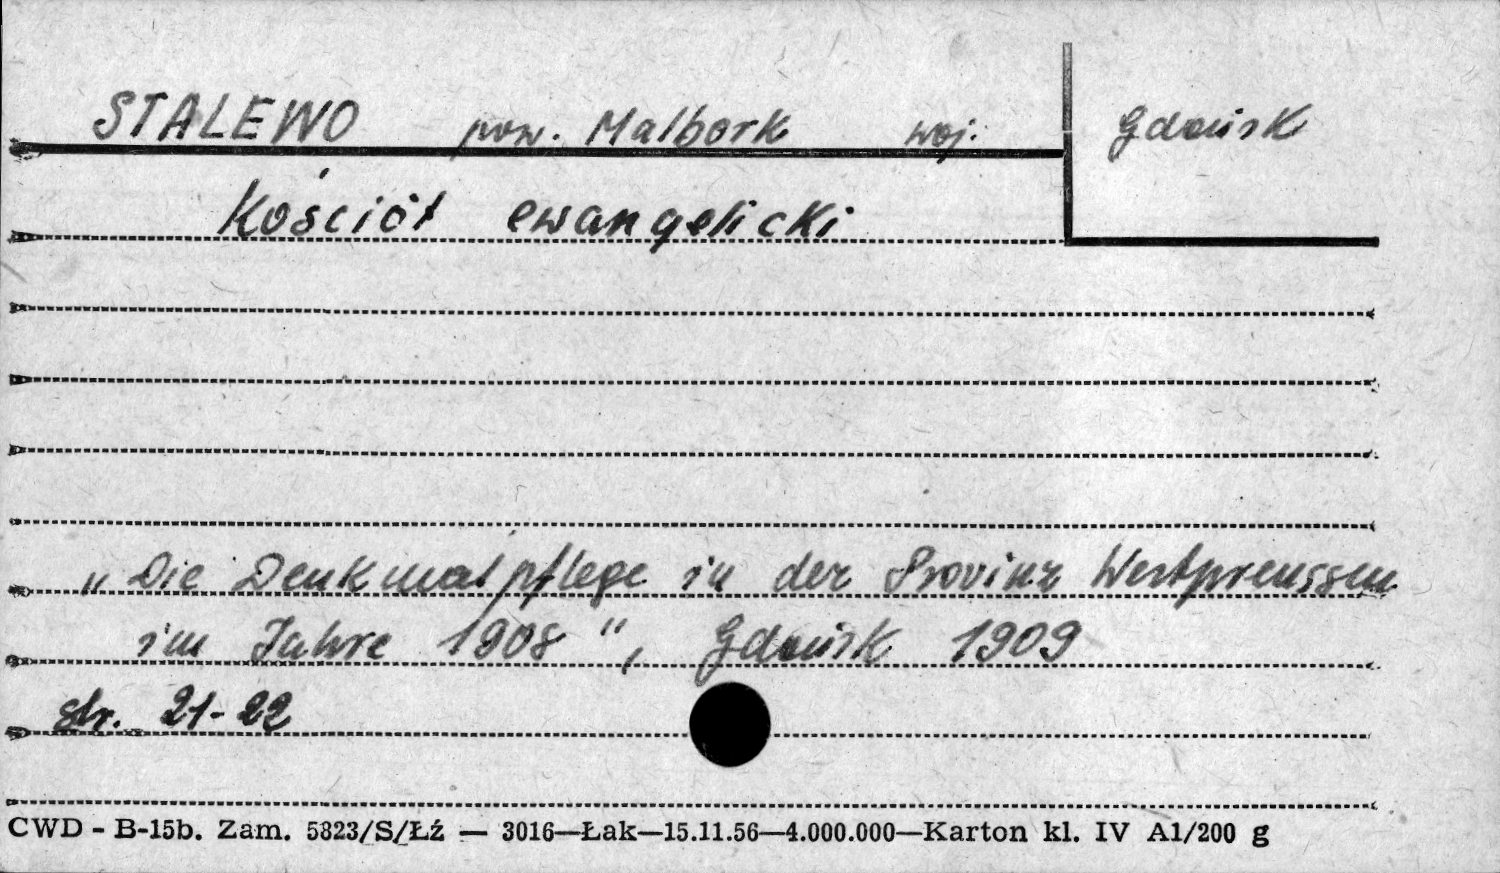 STALEWO pow. Malbork woj. Gdańsk
Kościół ewangelicki
„Die Denkmalpflege in der Provinz Westpreussen
im Jahre 1908", Gdańsk 1909
str. 21-22
CWD - B-15b. Zam. 5823/S/Łź — 3016—Łak—15.11.56—4.000.000—Karton kl. IV A1/200 g